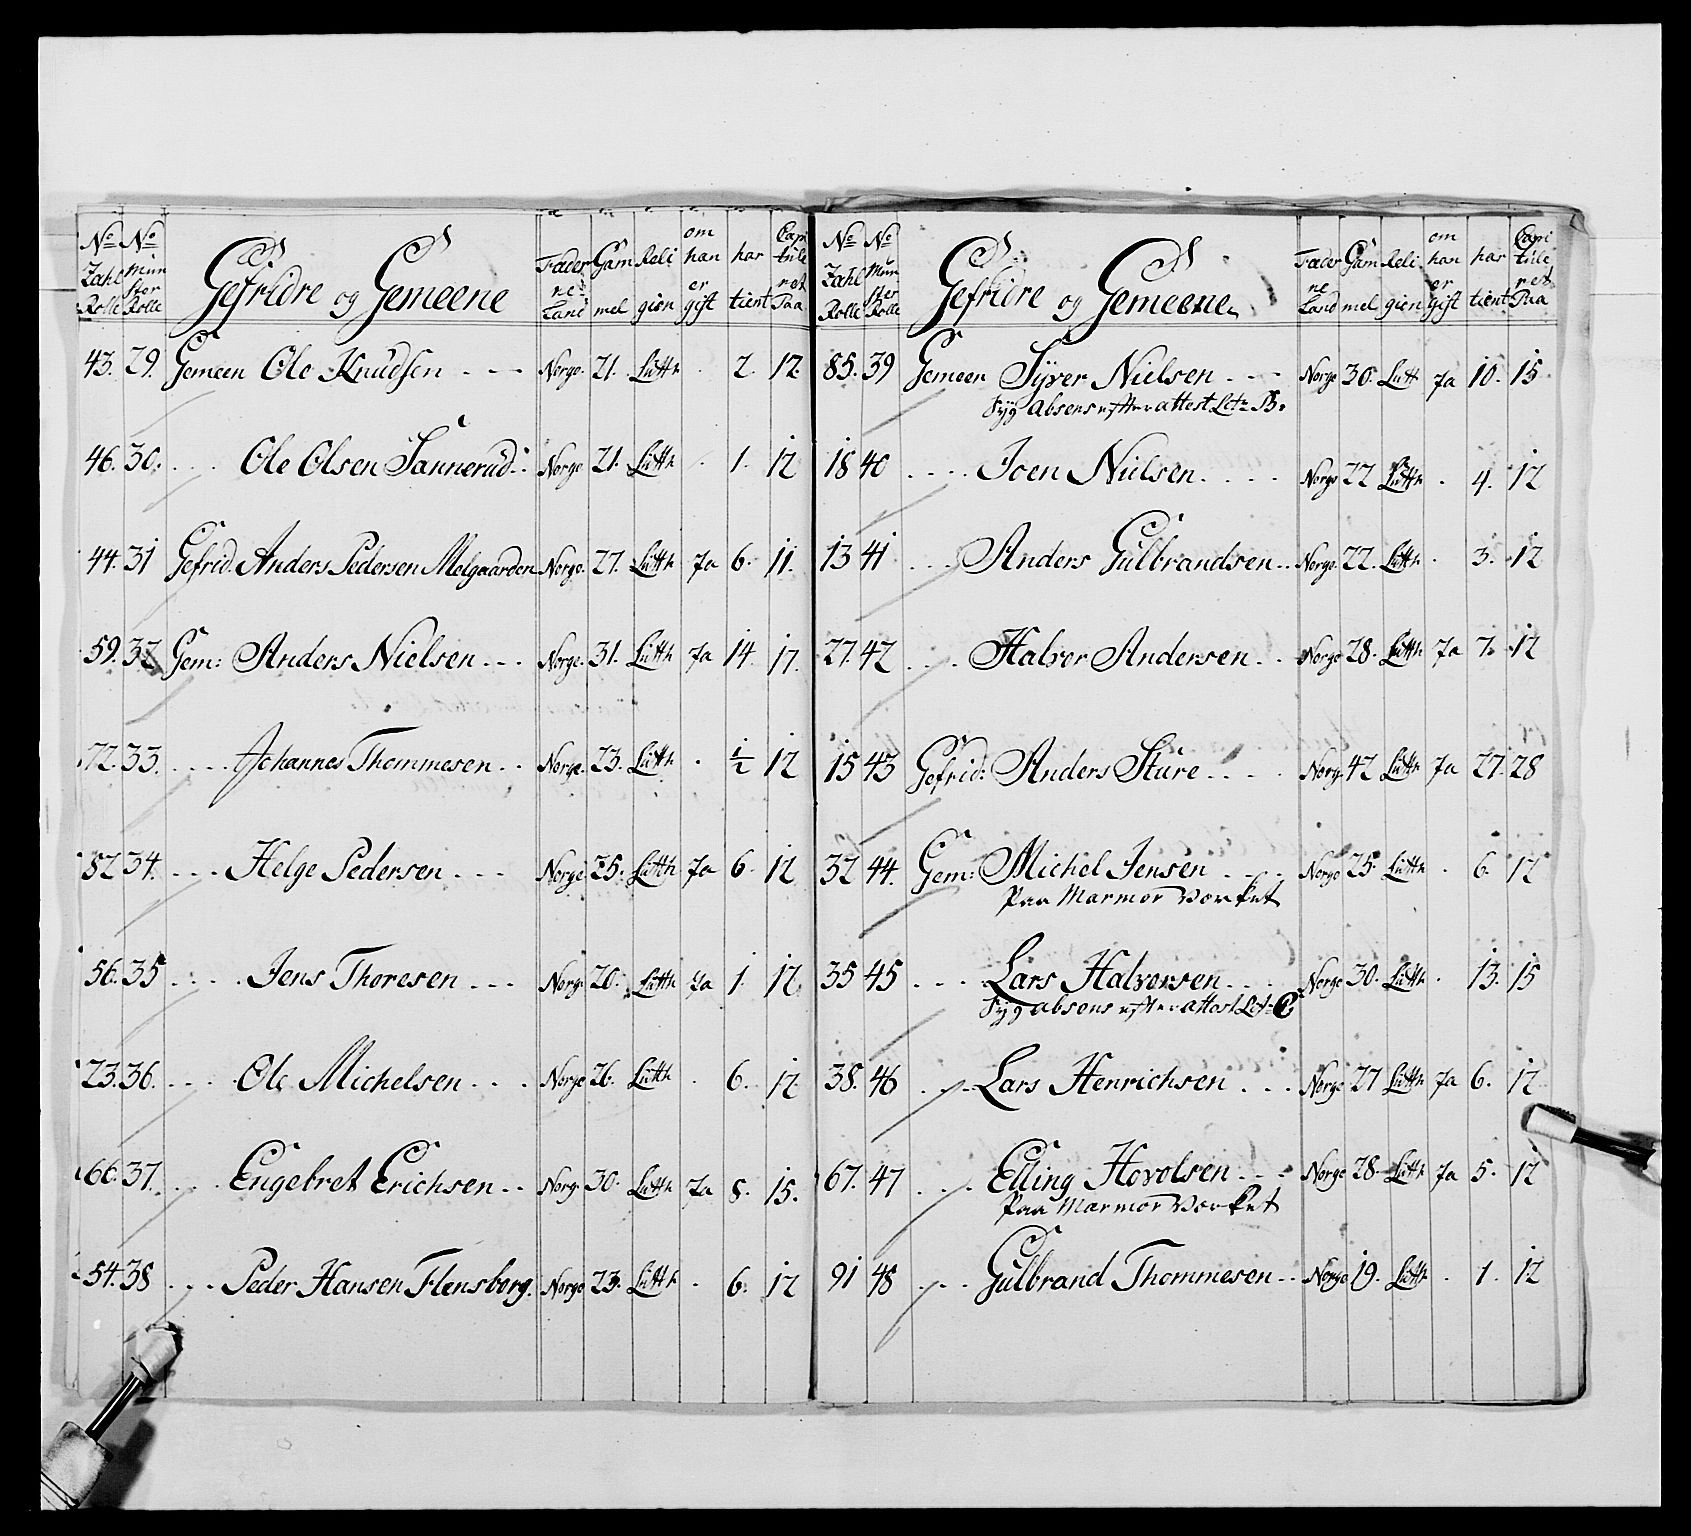 No Zahl Rolle No Münster Rolle Gefridre og Gemeene Faderne Land Gammel Religion om han er gift har tient Capituleret Paa
43. 29. Gemeen Ole Knudsen - - - Norge. 21. Luth . 2. 12
46. 30. . . . . Ole Olsen Sannerud. Norge 21. Luth . 1. 12
44. 31 Gefrid: Anders Pedersen Melgaarden Norge. 27. Luth Ja 6. 11.
59. 32 Gem: Anders Nielsen - - - Norge. 31. Luth Ja 14. 17.
72. 33. . . . . Johannes Thommesen . . Norge. 23. Luth . ½ 12
82 34. . . . . Helge Pedersen - - - Norge 25. Luth Ja 6. 12
56. 35 . . . . Jens Thoresen - - - Norge 20. Luth Ja 1. 12.
23. 36. . . . . Ole Michelsen . . . Norge 26. Luth . 6. 12
66. 37. . . . . Engebret Erichsen . . Norg. 30. Luth Ja 8. 15.
54. 38 . . . . Peder Hansen Flensborg. Norge 23. Luth . 6. 12
No Zahl Rolle No Munster Rolle Gefridre og Gemeene. Faderne Land Gammel Religion om han er Gift har tient Capituleret Paa
85. 39 Gemeen Syver Nielsen . - - - Norge 30. Luth Ja 10. 15.
Syg absens efter attest Litr: B.
18 40 . . . . Joen Nielsen . . . . Norge 22 Luth . 4. 12
13 41 . . . . Anders Gulbrandsen . . Norge. 22. Luth . 3. 12
27. 42 . . . . Halvor Andersen . . Norge 28. Luth Ja 7. 12
15 43 Gefrid: Anders Sture . . . . Norg. 42 Luth Ja 27. 28
32 44. Gem: Michel Jensen . . . . Norge 25. Luth . 6. 12
Paa Marmor Vercket
35 45 . . . . Lars Halvorsen . . . Norge 30. Luth . 13. 15
Syg absens efter attest Litr: C
38. 46 . . . . Lars Henrichsen . . . Norge 27 Luth Ja 6. 12
67. 47 . . . . Elling Hovolsen . . . Norge 28. Luth Ja 5. 12
Paa Marmor Vercket
91 48 . . . . Gulbrand Thommesen . . Norge 19. Luth . 1. 12